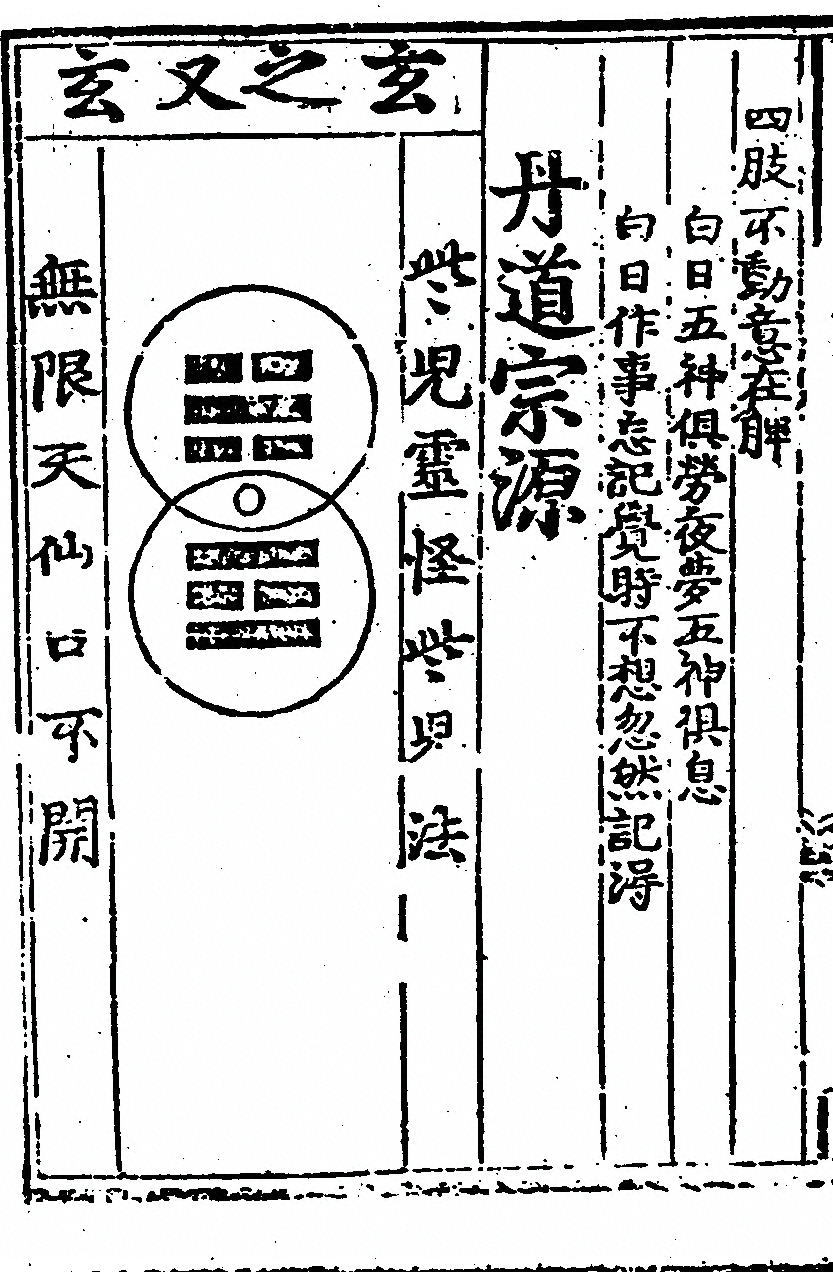 四肢不動意在脾
白日五神俱勞夜夢五神俱息
白日作事忘記覺時不想忽然記得
丹道宗源
玄之又玄
些兒靈怪些兒法
無限天仙口不開